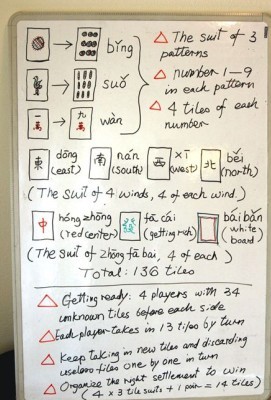 bǐng
△ The suit of 3 patterns
suǒ
△ number 1-9 in each pattern
一萬 → 九萬 wàn
△ 4 tiles of each number
東 dōng (east) 南 nán (south) 西 xī (west) 北 běi (north)
(The suit of 4 winds, 4 of each wind.)
中 hóng zhōng (red center) 發 fā cái (getting rich) bái bǎn (white board)
(The suit of zhōng fā bai, 4 of each)
Total: 136 tiles
△ Getting ready: 4 players with 34
unknown tiles before each side
△ Each player takes in 13 tiles by turn
△ Keep taking in new tiles and discarding
useless tiles one by one in turn
△ Organize the right settlement to win
(4 x 3 tile suits + 1 pair = 14 tiles)